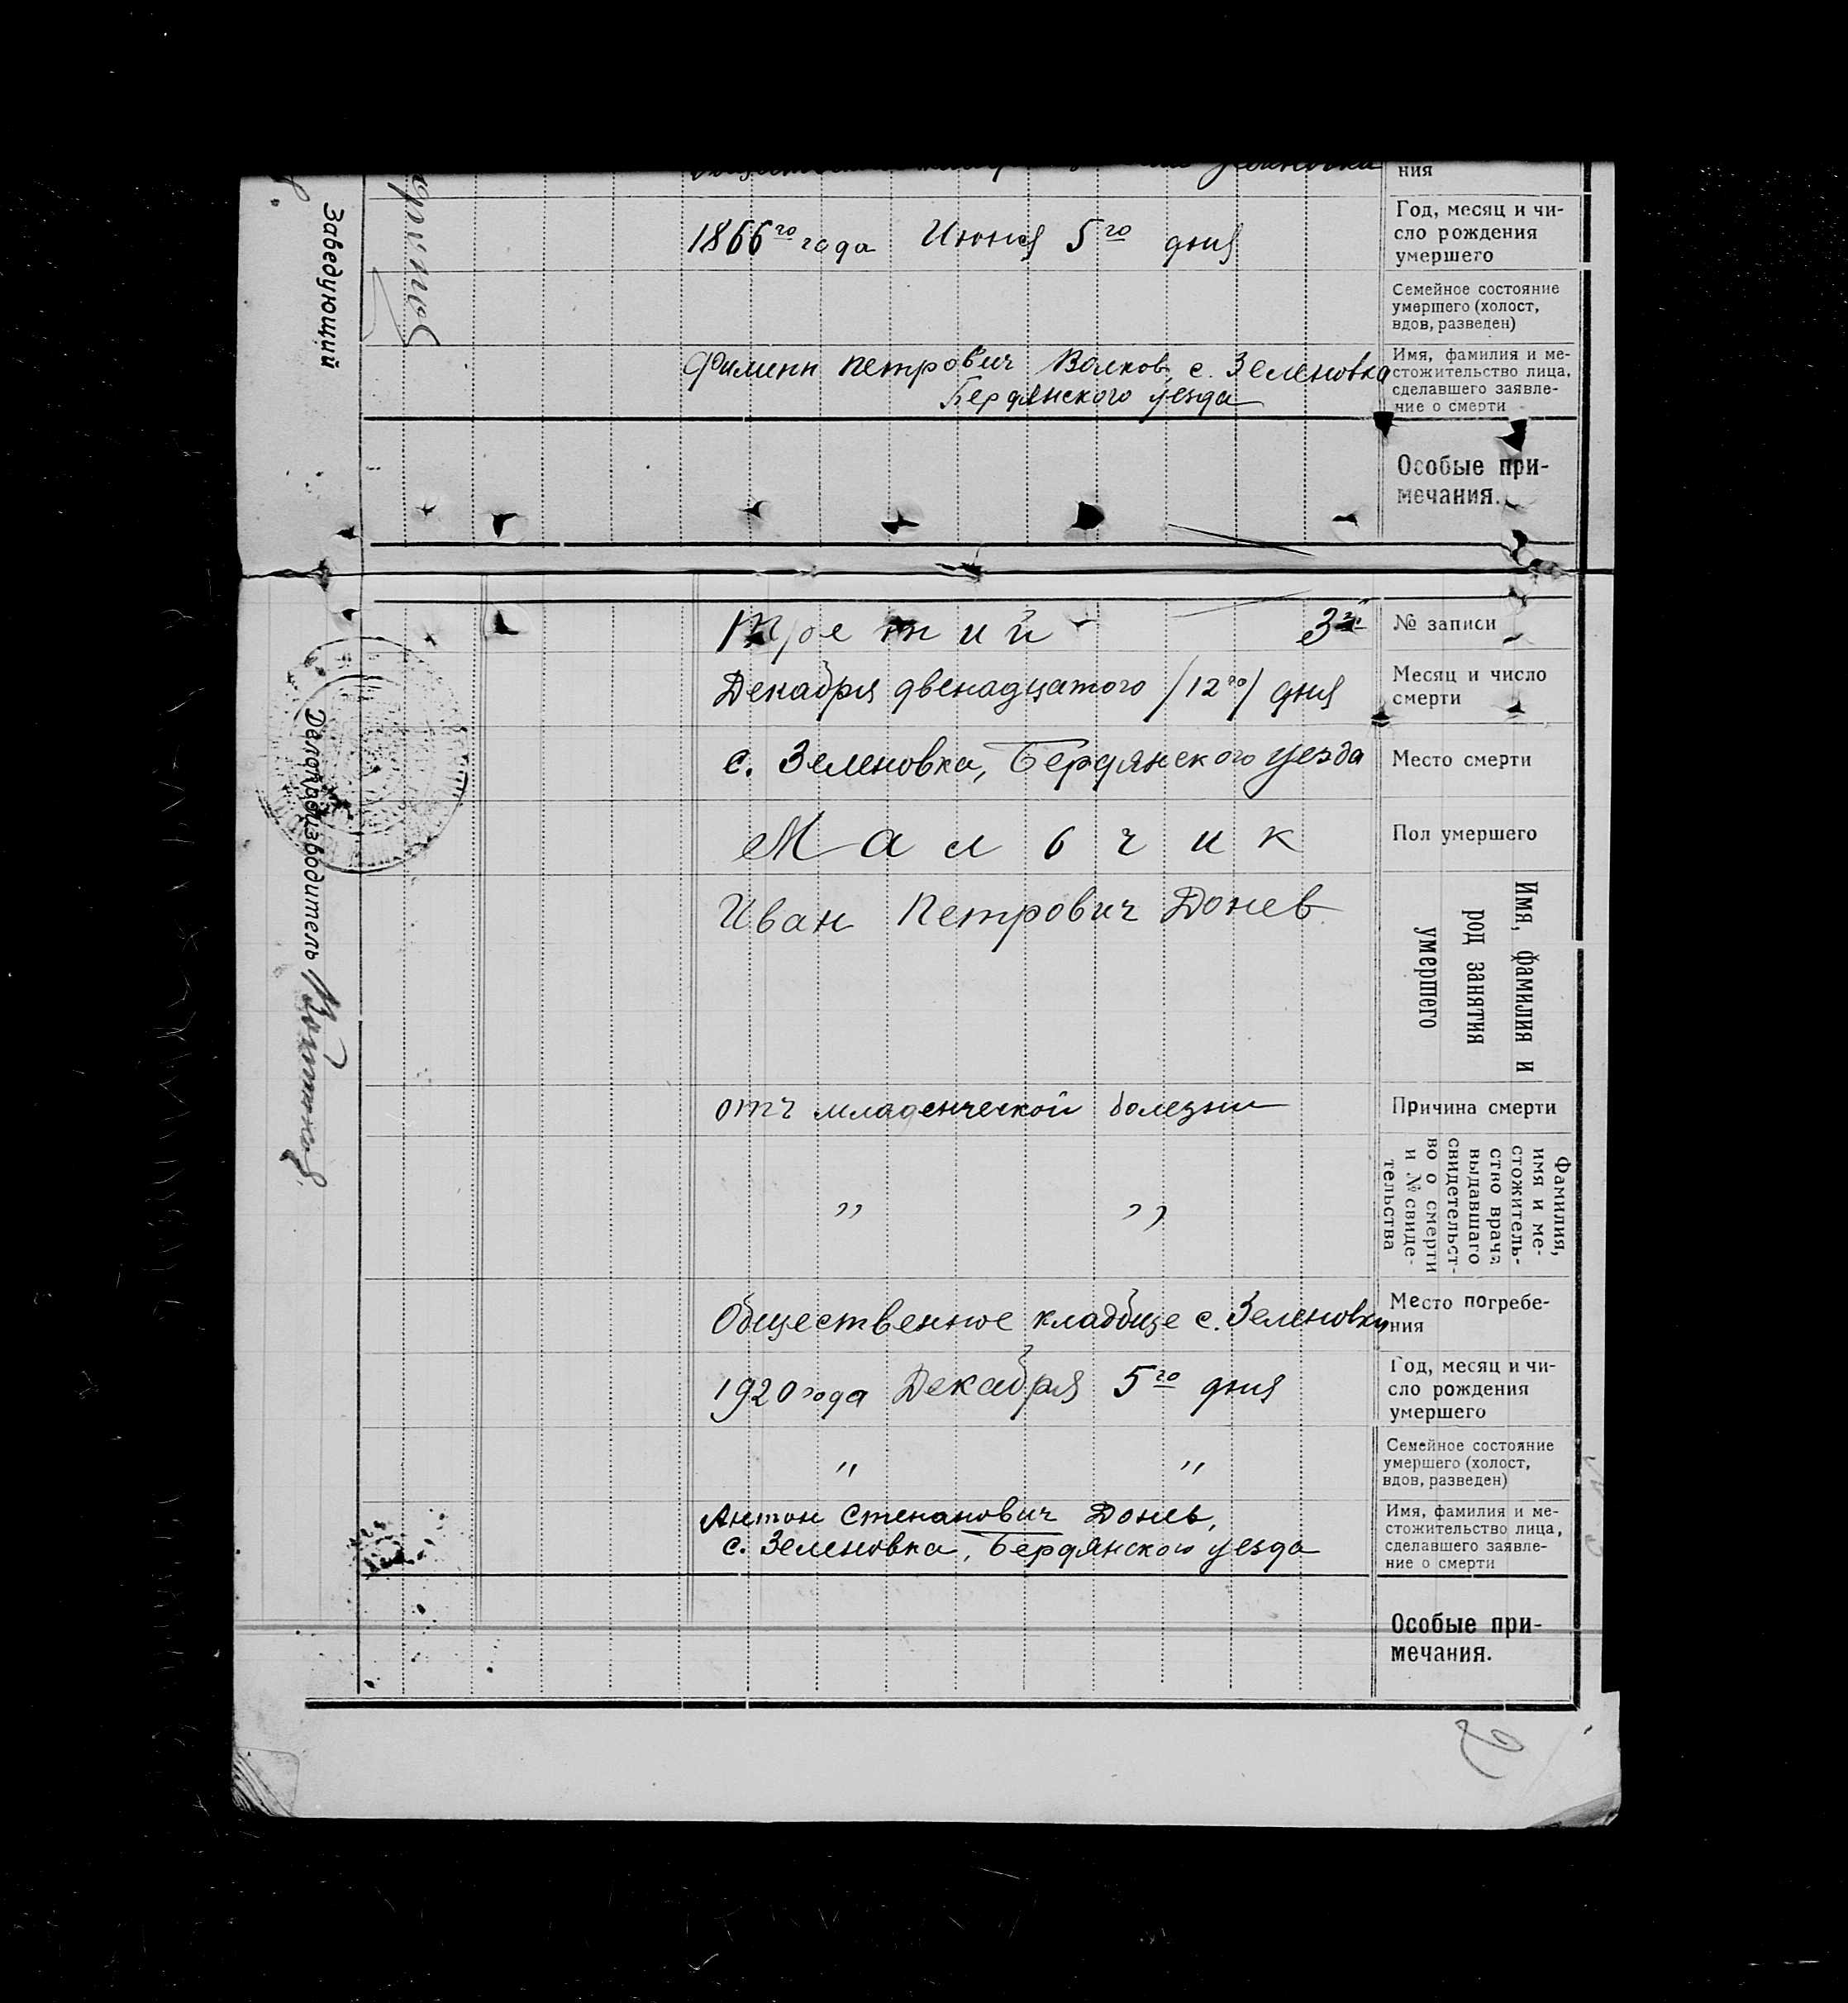 ния
1866го года Июня 5го дня
Год, месяц и чи-
сло рождения
умершего
Семейное состояние
умершего (холост,
вдов, разведен)
Филипп Петрович Волков, с. Зеленовка
Бердянского уезда
Имя, фамилия и ме-
стожительство лица,
сделавшего заявле-
ние о смерти
Особые при-
мечания.
Заведующий
Третий 3й
№ записи
Декабря двенадцатого /12го/ дня
Месяц и число
смерти
с. Зеленовка, Бердянского уезда
Место смерти
Мальчик
Пол умершего
Иван Петрович Донев
Имя, фамилия и
род занятия
умершего
отъ младенческой болезни
Причина смерти
" "
Фамилия,
имя и ме-
стожитель-
ство врача
выдавшаго
свидетельст-
во о смерти
и № свиде-
тельства
Общественное кладбище с. Зеленовки
Место погребе-
ния
1920 года Декабря 5го дня
Год, месяц и чи-
сло рождения
умершего
" "
Семейное состояние
умершего (холост,
вдов, разведен)
Антон Степанович Донев,
с. Зеленовка, Бердянского уезда
Имя, фамилия и ме-
стожительство лица,
сделавшего заявле-
ние о смерти
Особые при-
мечания.
Делопроизводитель
2